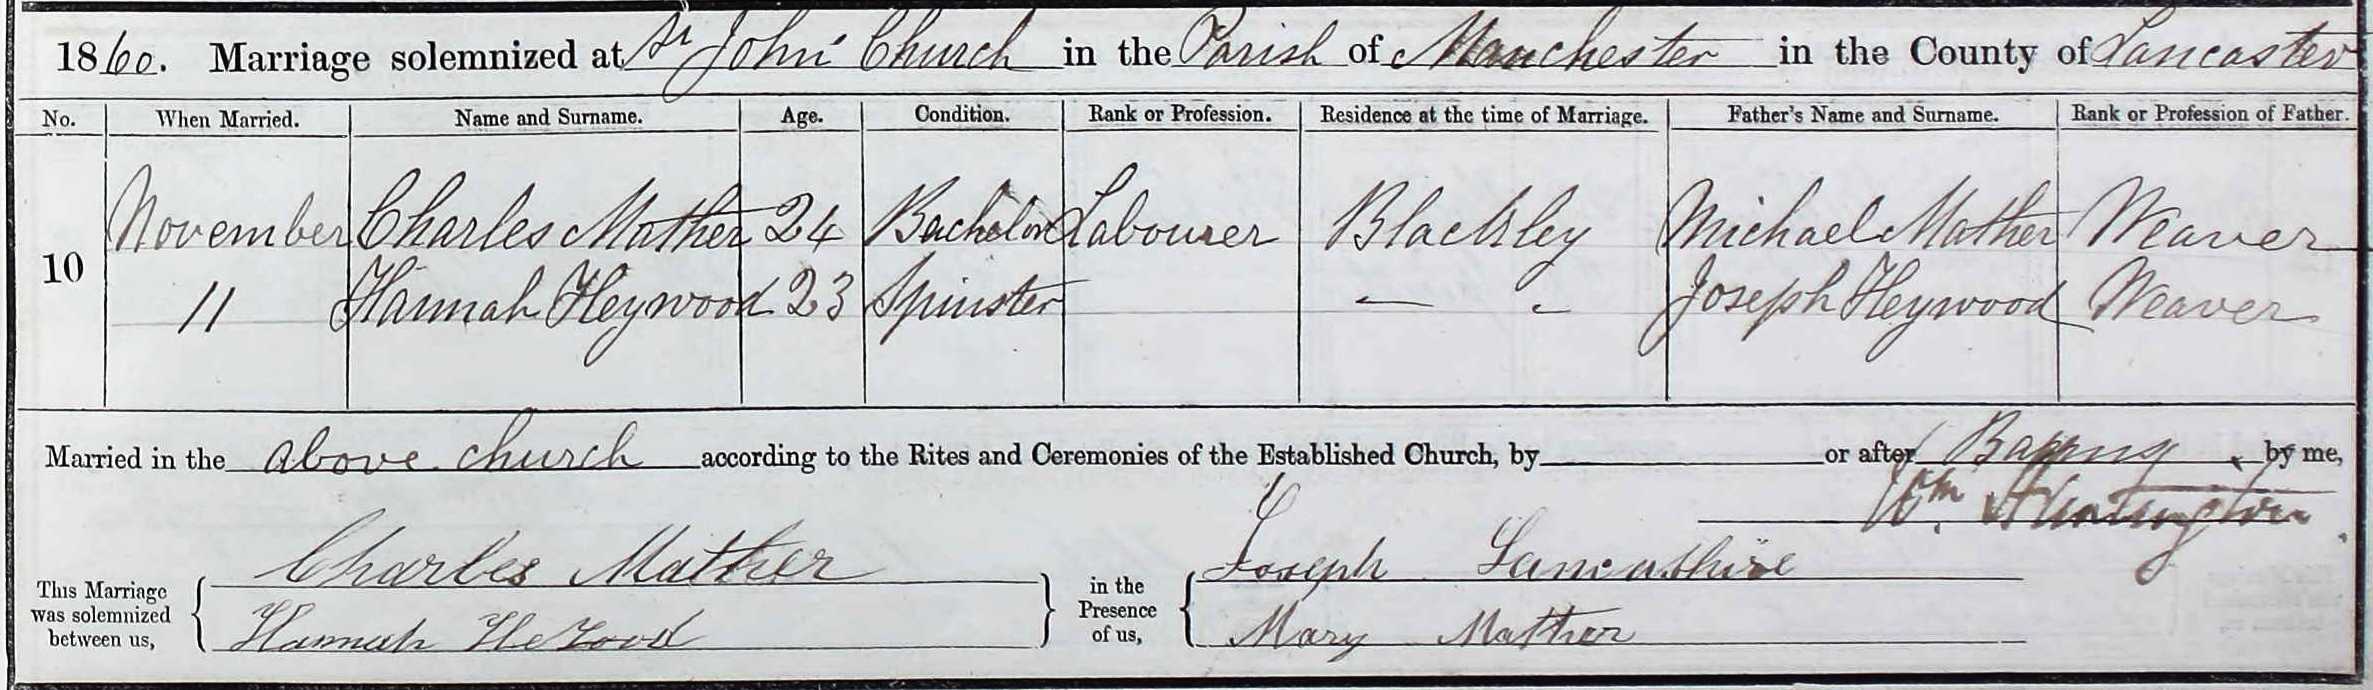 1860. Marriage solemnized at St John' Church in the Parish of Manchester in the County of Lancaster
No. When Married. Name and Surname. Age. Condition. Rank or Profession. Residence at the time of Marriage. Father's Name and Surname. Rank or Profession of Father.
November Charles Mather 24 Bachelor Labourer Blackley Michael Mather Weaver
10
11 Hannah Heywood 23 Spinster — - Joseph Heywood Weaver
Married in the above church according to the Rites and Ceremonies of the Established Church, by or after by me,
Wm Huntington
Charles Mather Joseph Lancashire
This Marriage was solemnized between us, in the Presence of us,
Hannah Mary Mather